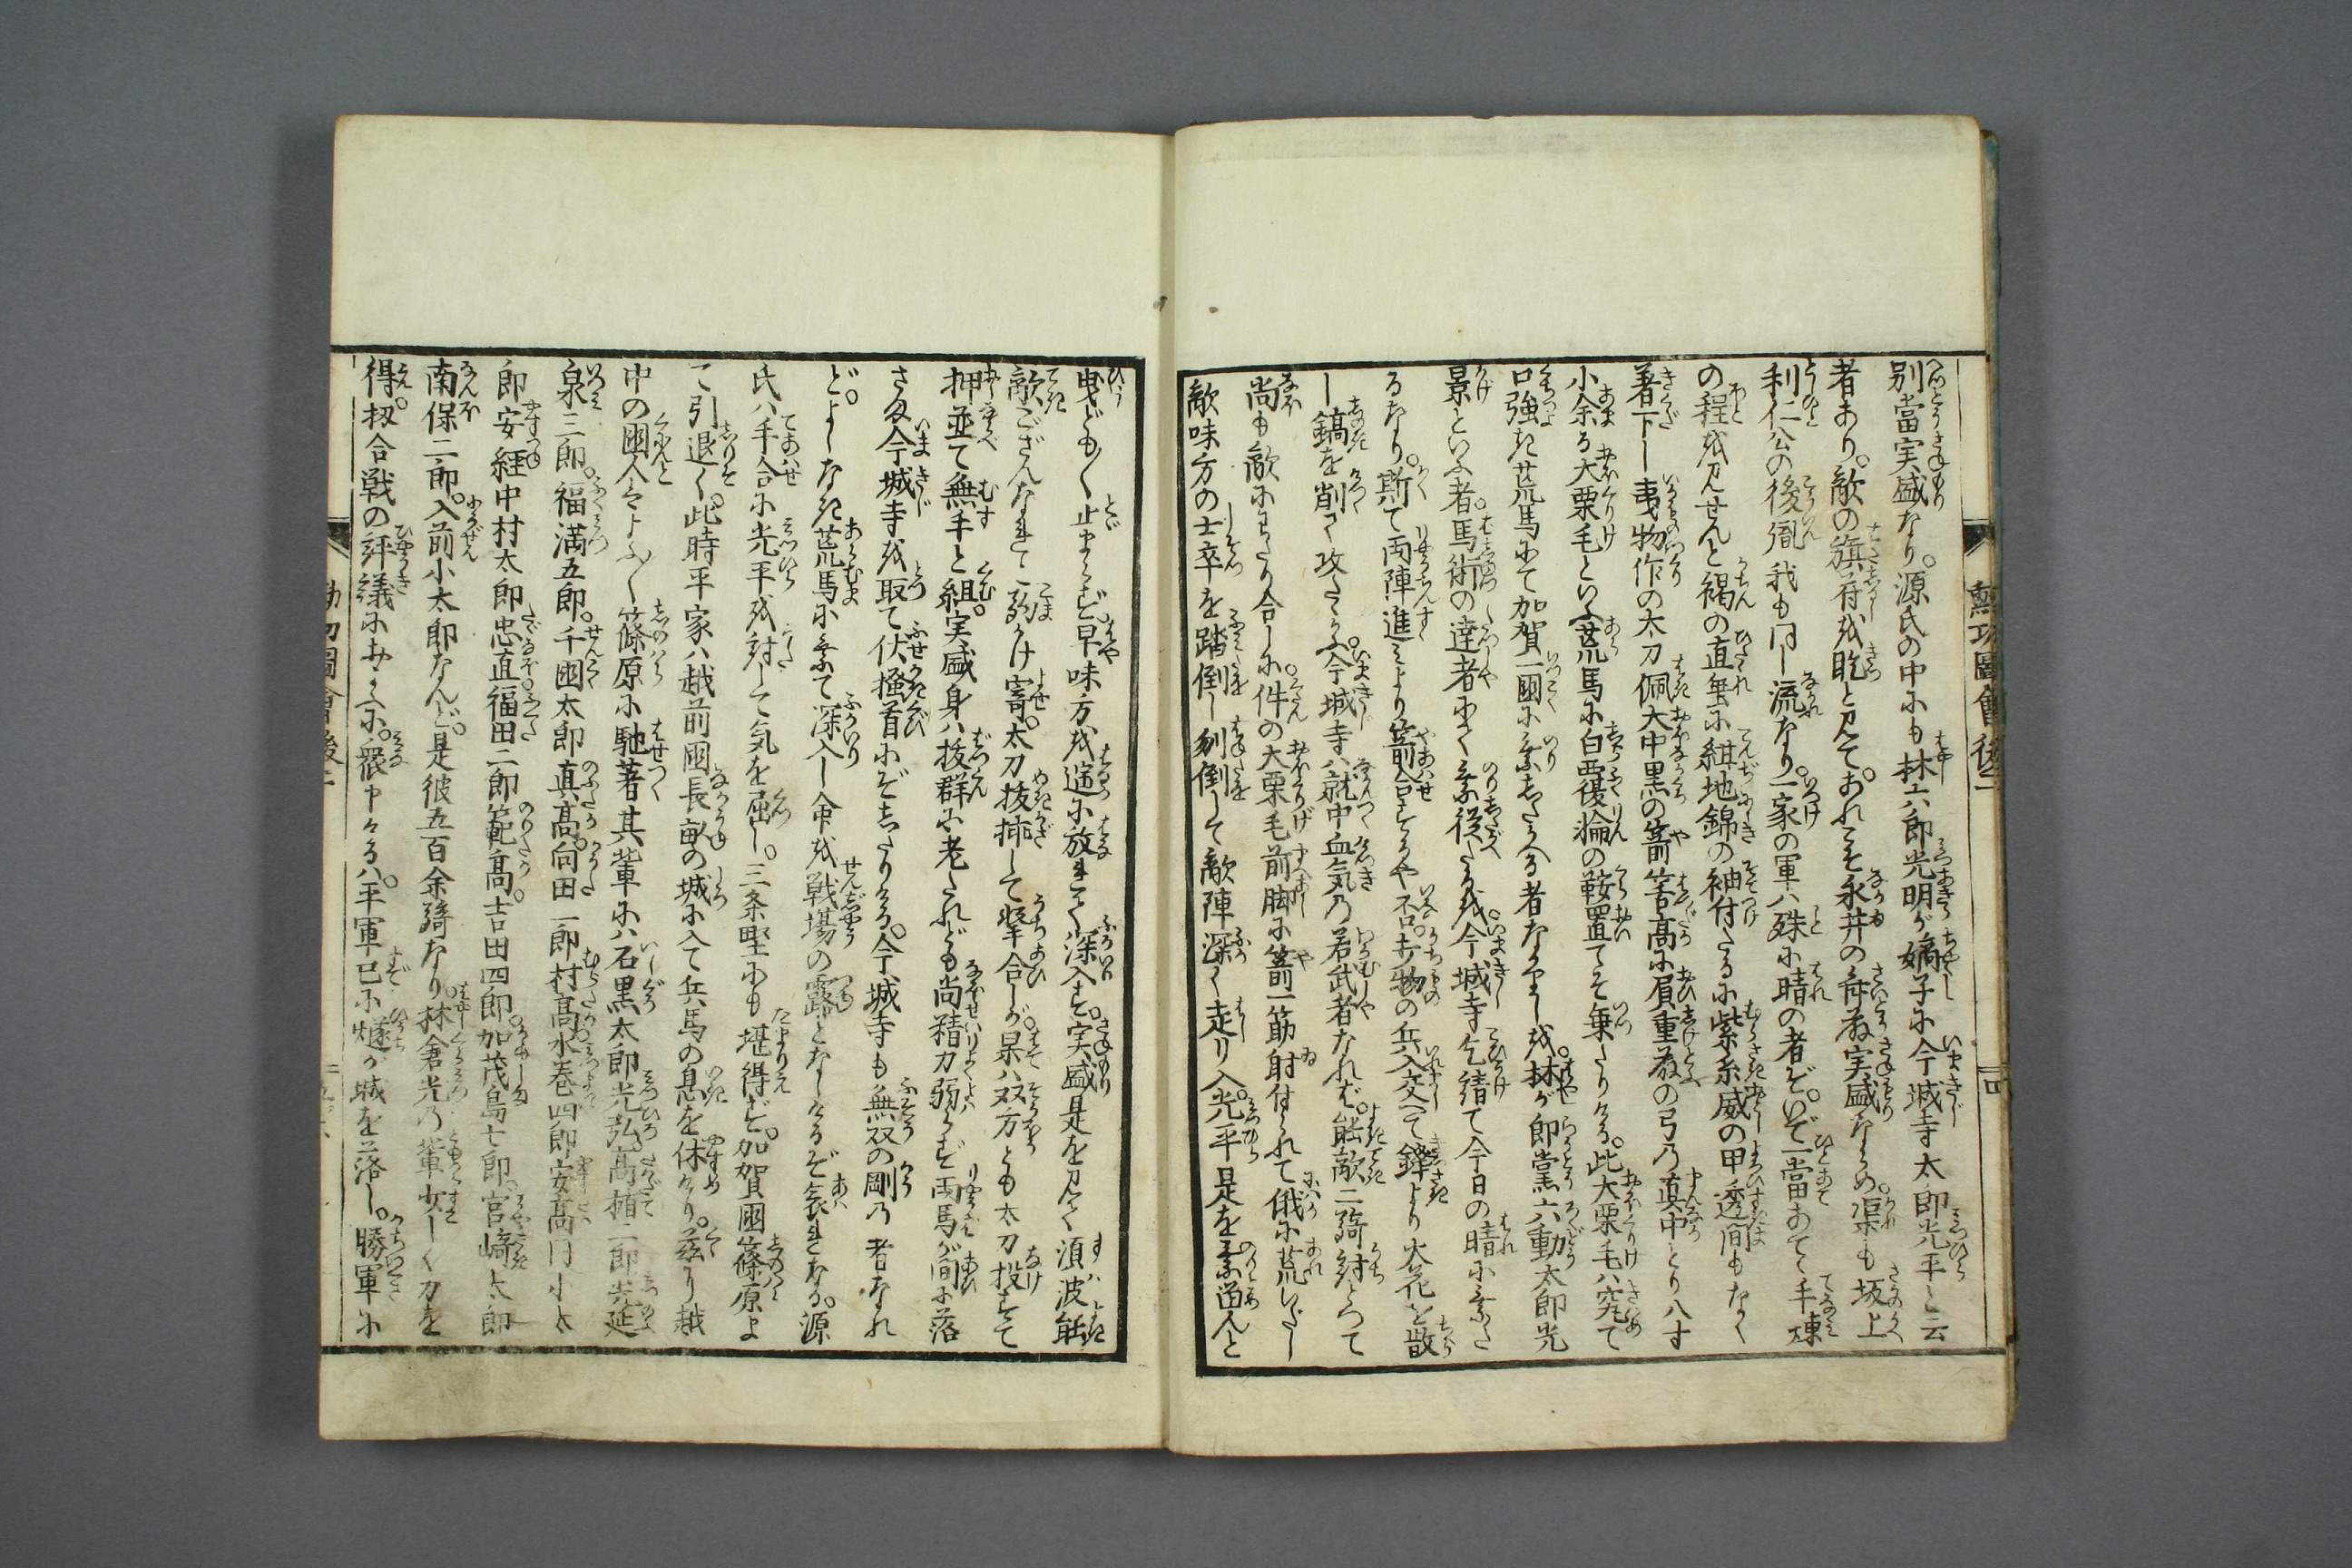 別當実盛なり。源氏の中にも林六郎光明が嫡子に今城寺太郎光平と云
者あり。敵の旗符を吃と見て。あれこそ永井の斎藤実盛なるめ。渠も坂上
利仁公の後胤我も同し流なり。一家の軍ハ殊に晴の者ぞ。いで一當あてゝ手煉
の程を見せんと褐の直垂に紺地錦の袖付たるに紫糸威の甲透間もなく
著下し夷物作の太刀佩大中黒の箭筈高に屓重藤の弓乃真中とり八寸
小余る大栗毛といふ荒馬に白覆輪の鞍置てそ乗たりける。此大栗毛ハ究て
口強き荒馬にて加賀一國に乗したる者なかりしを。林が郎黨六動太郎光
景といふ者。馬術の達者にて乗従たるを。今城寺乞請て今日の晴に乗た
るなり。斯て両陣進みより箭合するや否。打物の兵入交へて鋒より火花を散
し鎬を削て攻たゝふ。今城寺ハ就中血気乃若武者なれば。能敵二騎討とつて
尚も敵にわたり合しに。件の大栗毛前脚に箭一筋射付られて俄に荒いだし
敵味方の士卒を踏倒し刎倒して敵陣深く走り入。光平是を乗留んと
曳ども〳〵止まらず。早味方を遥に放れて深入す。実盛是を見て須波能
敵ござんなれとこ駒かけ寄。太刀抜插して撃合しが。果ハ双方とも太刀投すて
押並て無手と組。実盛身ハ抜群に老たれども尚精力弱らず両馬が間に落
さま今城寺を取て伏掻首にぞしたりける。今城寺も無双の剛乃者なれ
ど。よしなき荒馬に乗て深入し命を戦場の露となしけるぞ哀れなる。源
氏ハ手合に光平を討して気を屈し。三条野にも堪得ず。加賀國篠原よ
て引退く。此時平家ハ越前國長畝の城に入て兵馬の息を休めけり。茲り越
中の國人等よふ〳〵篠原に馳著其輩にハ石黒太郎光弘高楯二郎光延
泉三郎。福満五郎。千國太郎真高。向田二郎村高水巻四郎安高同小太
郎安経中村太郎忠直福田二郎範高。吉田四郎。加茂島七郎宮崎太郎
南保二郎。入前小太郎なんど。是彼五百余騎なり。林倉光乃輩少しく力を
得。扨合戦の評議に及ふに。衆中けるハ。平軍已に燧が城を落し。勝軍に